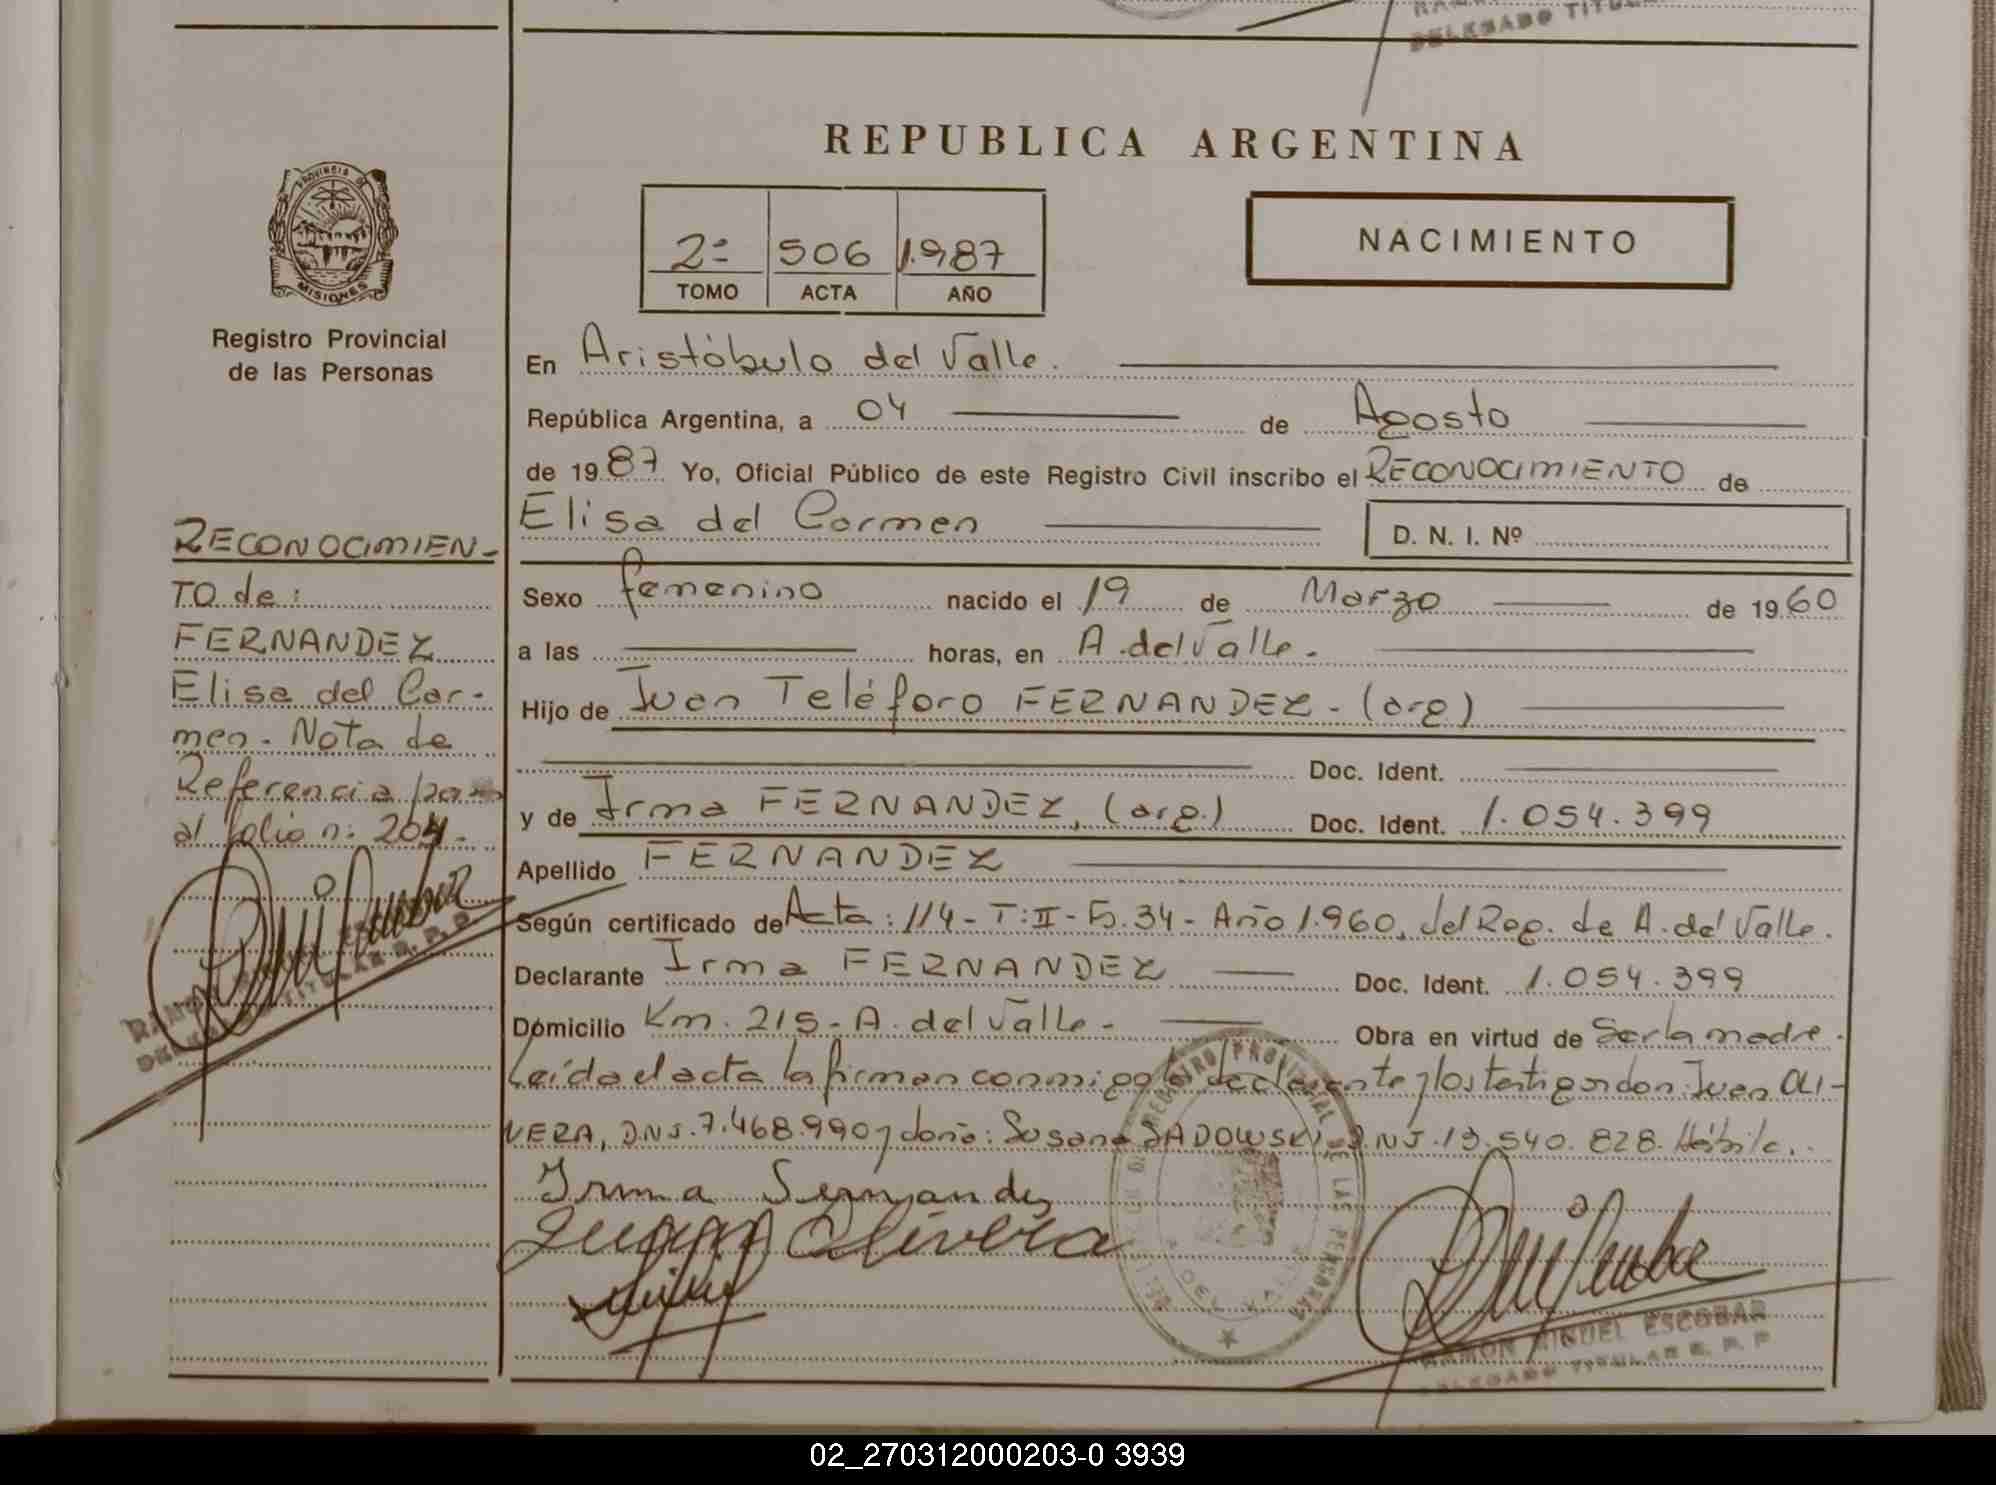 DELEGADO TITULAR
REPUBLICA ARGENTINA
PROVINCIA DE
MISIONES
Registro Provincial
de las Personas
2º 506 1.987
TOMO ACTA AÑO
NACIMIENTO
En Aristóbulo del Valle.
República Argentina, a 04 de Agosto
de 1987 Yo, Oficial Público de este Registro Civil inscribo el RECONOCIMIENTO de
Elisa del Carmen D. N. I. Nº
Sexo femenino nacido el 19 de Marzo de 1960
a las horas, en A. del Valle.
Hijo de Juan Teléforo FERNANDEZ - (arg)
Doc. Ident.
y de Irma FERNANDEZ, (arg.) Doc. Ident. 1.054.399
Apellido FERNANDEZ
Según certificado de Acta: 114 - T: II - Fo. 34 - Año 1.960, del Reg. de A. del Valle.
Declarante Irma FERNANDEZ Doc. Ident. 1.054.399
Domicilio Km. 215 - A. del Valle - Obra en virtud de Ser la madre.
Leída el acta la firman conmigo la declarante y los testigos don: Juan OLI-
VERA, D.N.I. 7.468.990 y doña: Susana SADOWSKI, D.N.I. 13.540.828. Hábile.
Irma Fernandez
Juan Olivera
RAMON MIGUEL ESCOBAR
DELEGADO TITULAR R. P. P
REGISTRO PROVINCIAL DE LAS PERSONAS
DEL VALLE
RECONOCIMIEN-
TO de:
FERNANDEZ
Elisa del Car-
men. Nota de
Referencia pasa
al folio n: 204.
RAMON MIGUEL ESCOBAR
DELEGADO TITULAR R. P. P
02_270312000203-0 3939